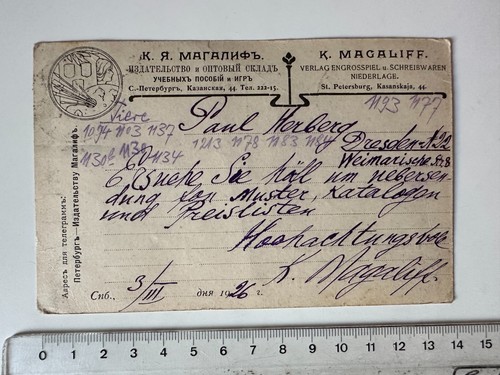 К. Я. МАГАЛИФЪ.
ИЗДАТЕЛЬСТВО и ОПТОВЫЙ СКЛАДЪ
УЧЕБНЫХЪ ПОСОБІЙ и ИГРЪ
С.-Петербургъ, Казанская, 44. Тел. 222-15.
K. MAGALIFF.
VERLAG ENGROSSPIEL u. SCHREIBWAREN
NIEDERLAGE.
St. Petersburg, Kasanskaja, 44.
1193 1177
Tiere
1094 1103 1137
1134
1213 1178 1183 1184
Paul Herberg
Dresden-N. 22
Weimarische Str. 8
Ersuche Sie höfl um uebersen-
dung von Muster, Katalogen
und Preislisten
Hochachtungsvoll
K. Magaliff.
Спб., 3/III дня 1926 г.
Адресъ для телеграммъ:
Петербургъ—Издательству Магалифъ.
0 1 2 3 4 5 6 7 8 9 10 11 12 13 14 15